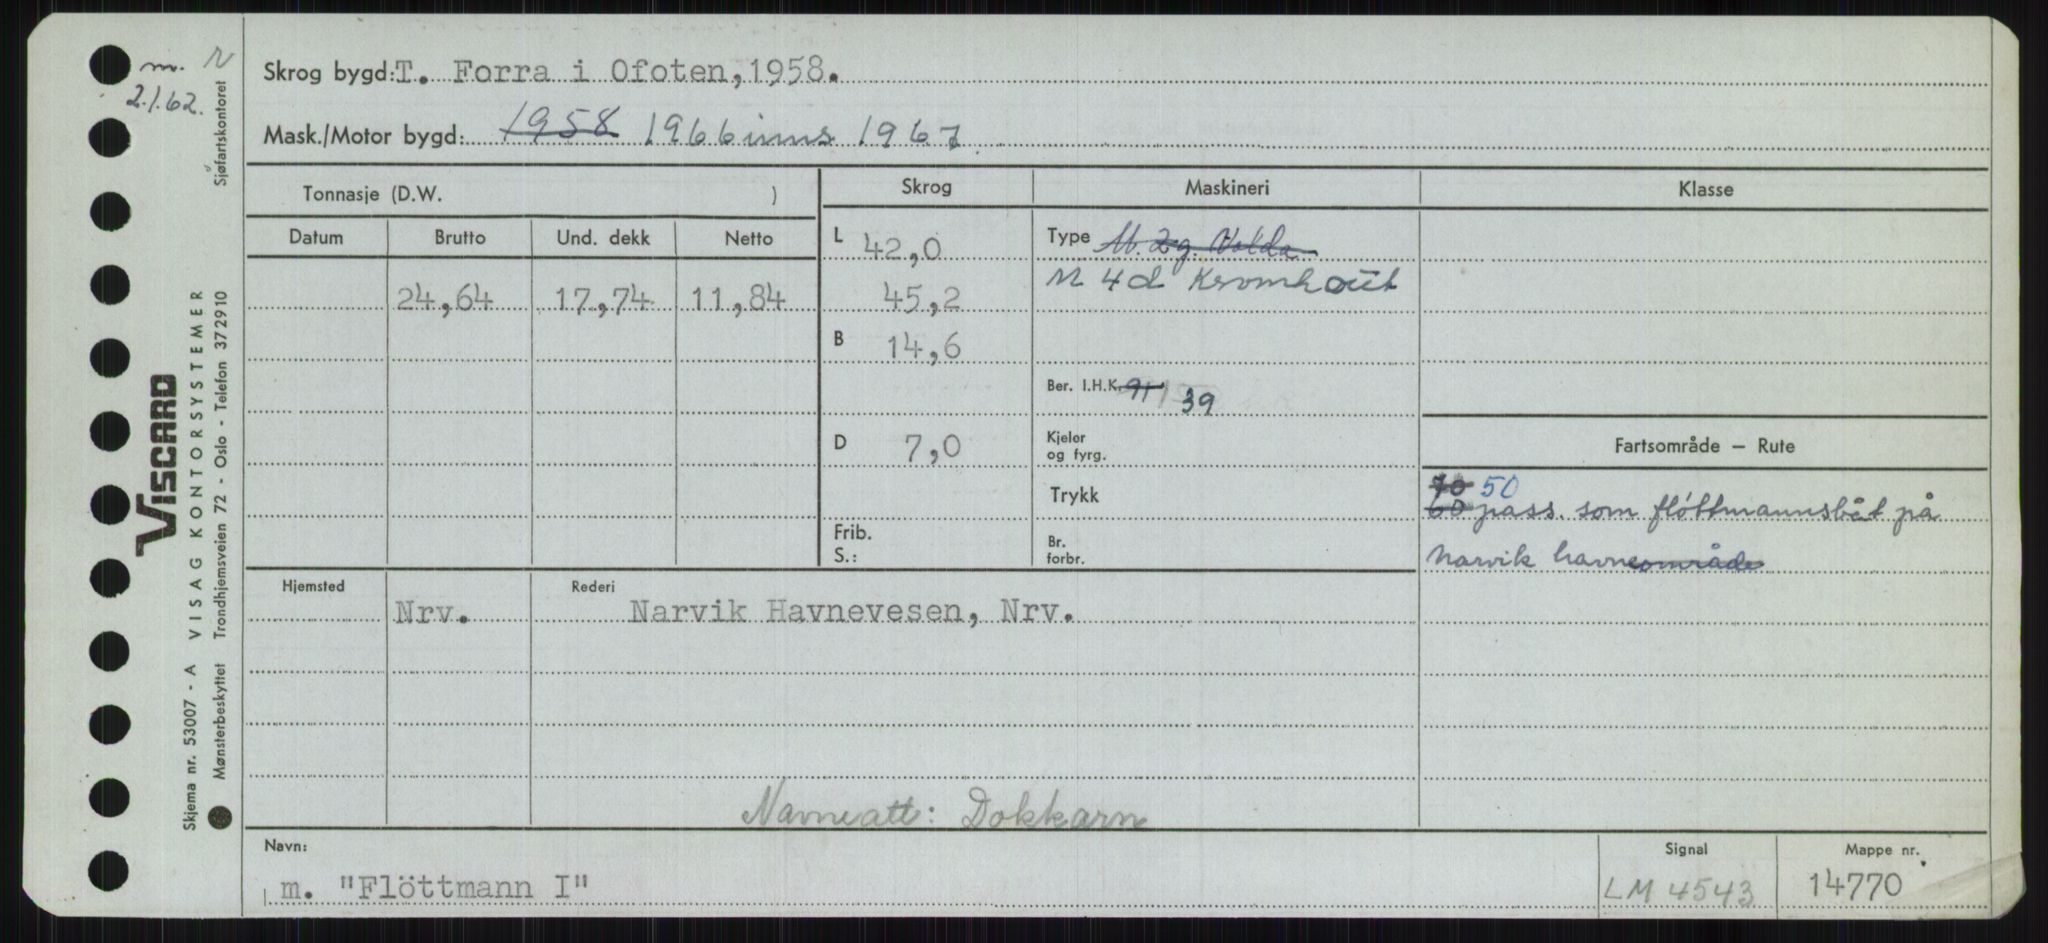 m. N
2.1.62.
Sjøfartskontoret
Skrog bygd: T. Forra i Ofoten, 1958.
Mask./Motor bygd: 1958 1966 inns 1967
Tonnasje (D.W. )
Skrog
Maskineri
Klasse
Datum Brutto Und. dekk Netto
24,64 17,74 11,84
L 42,0
45,2
B 14,6
D 7,0
Frib.
S.:
Type M. 2g. Volda
M 4d Kromhout
Ber. I.H.K. 91 39
Kjeler
og fyrg.
Trykk
Br.
forbr.
Fartsområde – Rute
70 50
60 pass. som fløttmannsbåt på
Narvik havneområde
Hjemsted
Nrv.
Rederi
Narvik Havnevesen, Nrv.
Navneatt: Dokkarn
Navn:
m. "Flöttmann I"
Signal
LM 4543
Mappe nr.
14770
VISCARD
Skjema nr. 53007 - A VISAG KONTORSYSTEMER
Mønsterbeskyttet Trondhjemsveien 72 - Oslo - Telefon 372910